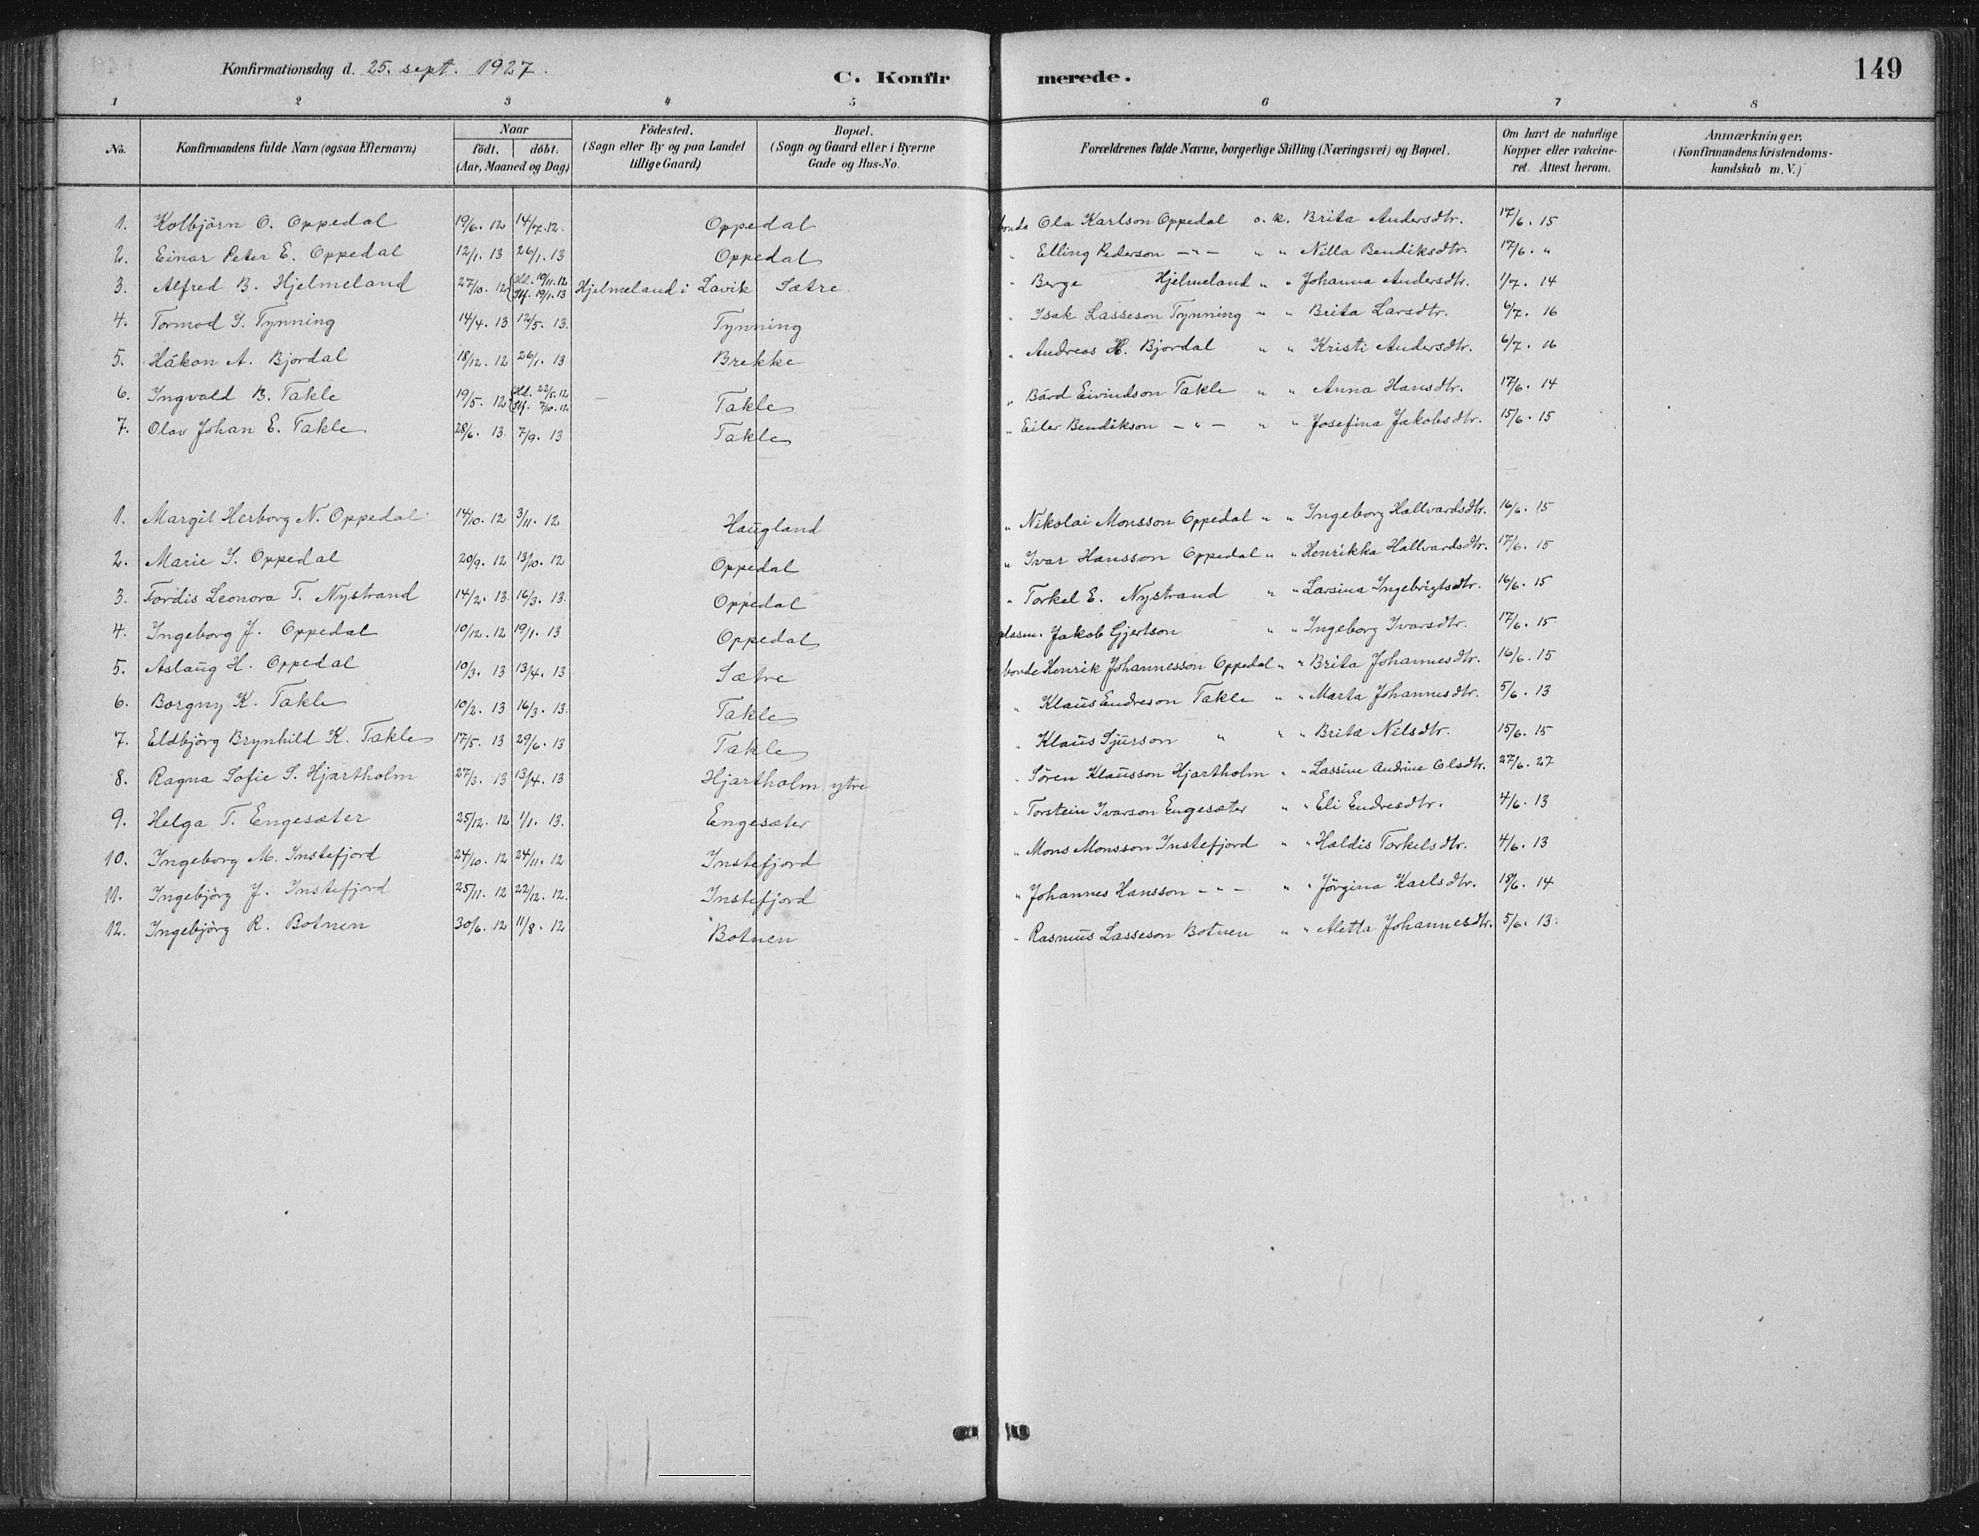 Konfirmationsdag d. 25. sept. 1927.
C. Konfirmerede.
149
1 2 3 4 5 6 7 8
No. Konfirmandens fulde Navn (ogsaa Efternavn) Naar födt. döbt. (Aar, Maaned og Dag) Födested. (Sogn eller By og paa Landet tillige Gaard) Bopæl. (Sogn og Gaard eller i Byerne Gade og Hus-No. Forældrenes fulde Navne, borgerlige Stilling (Næringsvei) og Bopæl. Om havt de naturlige Kopper eller vakcineret. Attest herom. Anmærkninger. (Konfirmandens Kristendomskundskab m. V.)
1. Kolbjørn O. Oppedal 19/6. 12 14/7. 12. Oppedal bonde Ola Karlson Oppedal o. k. Brita Andersdtr. 17/6. 15
2. Einar Peter E. Oppedal 12/1. 13 26/1. 13 Oppedal " Elling Pederson -"- " " Nilla Bendiksdtr. 17/6. "
3. Alfred B. Hjelmeland 27/10. 12 Hd. 10/11. 12 Stf. 19/1. 13 Hjelmeland i Lavik Sætre " Berge Hjelmeland " " Johanna Andersdtr. 1/7. 14
4. Tormod I. Tynning 14/4. 13 12/5. 13. Tynning " Isak Lasseson Tynning " " Brita Larsdtr. 6/7. 16
5. Håkon A. Bjordal 18/12. 12 26/1. 13 Brekke " Andreas H. Bjordal " " Kristi Andersdtr. 6/7. 16
6. Ingvald B. Takle 19/5. 12 Hd. 22/5. 12 Stf. 7/10. 12 Takle " Bård Eivindson Takle " " Anna Hansdtr. 17/6. 14
7. Olav Johan E. Takle 28/6. 13 7/9. 13 Takle " Eiler Bendikson -"- " " Josefina Jakobsdtr. 15/6. 15
1. Margit Herborg N. Oppedal 14/10. 12 3/11. 12 Haugland " Nikolai Monsson Oppedal " " Ingeborg Hallvardsdtr. 16/6. 15
2. Marie I. Oppedal 20/9. 12 13/10. 12 Oppedal " Ivar Hansson Oppedal " " Henrikka Hallvardsdtr. 17/6. 15
3. Tordis Leonora T. Nystrand 14/2. 13 16/3. 13. Oppedal " Torkel E. Nystrand " " Larsina Ingebrigtsdtr. 16/6. 15
4. Ingeborg J. Oppedal 10/12. 12 19/1. 13 Oppedal plasm. Jakob Gjertson " " Ingeborg Ivarsdtr. 17/6. 15
5. Aslaug H. Oppedal 10/3. 13 13/4. 13 Sætre bonde Henrik Johannesson Oppedal " " Brita Johannesdtr. 16/6. 15
6. Borgny K. Takle 10/2. 13 16/3. 13. Takle " Klaus Endreson Takle " " Marta Johannesdtr. 5/6. 13
7. Eldbjörg Brynhild K. Takle 17/5. 13 29/6. 13 Takle " Klaus Sjurson " " " Brita Nilsdtr. 15/6. 15
8. Ragna Sofie S. Hjartholm 27/3. 13 13/4. 13 Hjartholm ytre " Sören Klausson Hjartholm " " Lassine Andrine Olsdtr. 27/6. 27
9. Helga T. Engesæter 25/12. 12 1/1. 13. Engesæter " Torstein Ivarson Engesæter " " Eli Endresdtr. 4/6. 13
10. Ingeborg M. Instefjord 24/10. 12 24/11. 12 Instefjord " Mons Monsson Instefjord " " Haldis Torkelsdtr. 4/6. 13
11. Ingebjörg J. Instefjord 25/11. 12 22/12. 12. Instefjord " Johannes Hansson -"- " " Jörgina Karlsdtr. 18/6. 14
12. Ingebjörg R. Botnen 30/6. 12 11/8. 12 Botnen " Rasmus Lasseson Botnen " " Aletta Johannesdtr. 5/6. 13.